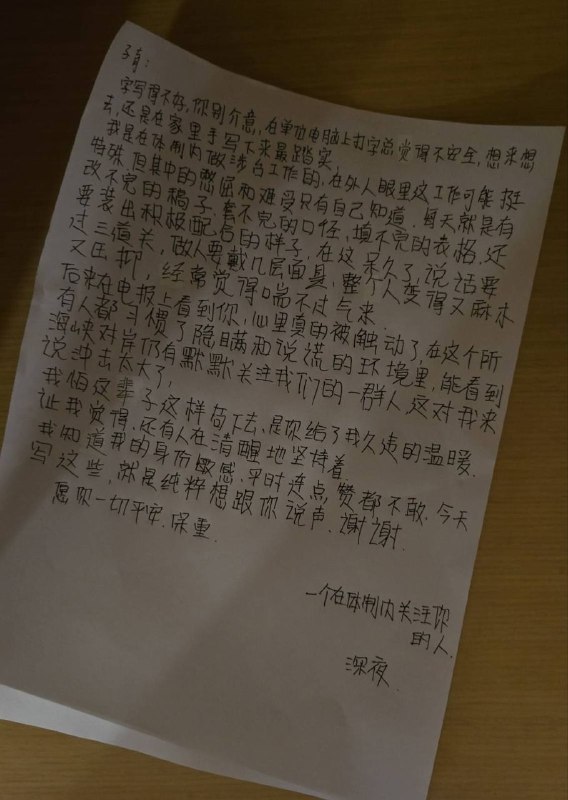 子育：
字写得不好，你别介意，在单位电脑上打字总觉得不安全，想来想
去，还是在家里手写下来最踏实。
我是在体制内做涉台工作的，在外人眼里这工作可能挺
特殊，但其中的憋屈和难受只有自己知道，每天就是有
改不完的稿子，套不完的口径，填不完的表格，还
要装出积极配合的样子，在这呆久了，说话要
过三道关，做人要戴几层面具，整个人变得又麻木
又压抑，经常觉得喘不过气来。
后来在电报上看到你，心里真的被触动了，在这个所
有人都习惯了隐瞒和说谎的环境里，能看到
海峡对岸仍有默默关注我们的一群人，这对我来
说冲击太大了，
我怕这辈子这样苟下去，是你给了我久违的温暖，
让我觉得，还有人在清醒地坚持着，
我知道我的身份敏感，平时连点赞都不敢，今天
写这些，就是纯粹想跟你说声，谢谢，
愿你一切平安，保重，
一个在体制内关注你
的人，
深夜，